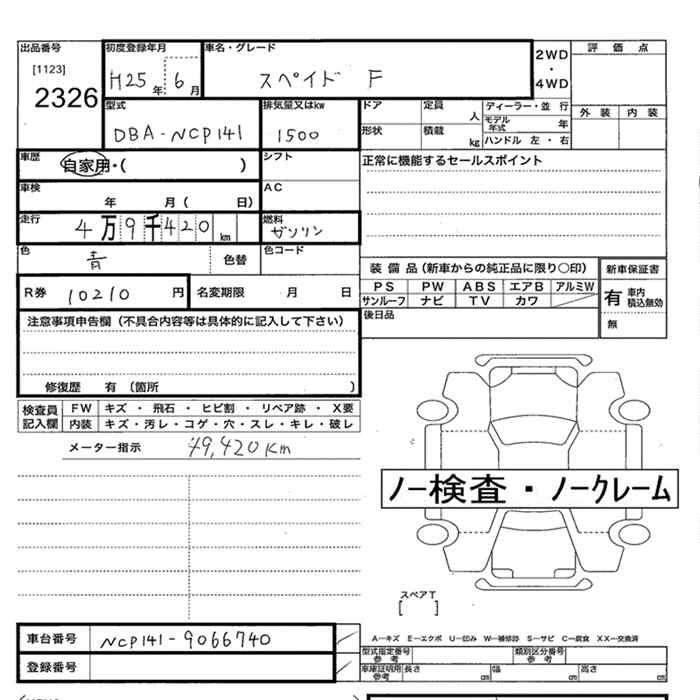 出品番号
[1123]
2326
初度登録年月
H25年 6月
車名・グレード
スペイド F
2WD
・
4WD
評価点
外装 内装
型式
DBA-NCP141
排気量又はkw
1500
ドア
定員 人
形状
積載 kg
ディーラー・並 行
モデル年式 年
ハンドル 左・右
車歴
自家用・( )
シフト
正常に機能するセールスポイント
車検
年 月( 日)
AC
走行
4万9千420km
燃料
ガソリン
色
青
色替
色コード
装備品(新車からの純正品に限り○印)
PS PW ABS エアB アルミW
サンルーフ ナビ TV カワ
新車保証書
有 車内積込無効
無
R券 10210円
名変期限 月 日
後日品
注意事項申告欄(不具合内容等は具体的に記入して下さい)
修復歴 有(箇所 )
検査員記入欄
FW キズ・飛石・ヒビ割・リペア跡・X要
内装 キズ・汚レ・コゲ・穴・スレ・キレ・破レ
メーター指示 49,420Km
ノー検査・ノークレーム
スペアT
[ ]
車台番号 NCP141-9066740
登録番号
A―キズ E―エクボ U―凹み W―補修跡 S―サビ C―腐食 XX―交換済
型式指定番号 参考
類別区分番号 参考
車庫証明用 参考
長さ cm 幅 cm 高さ cm